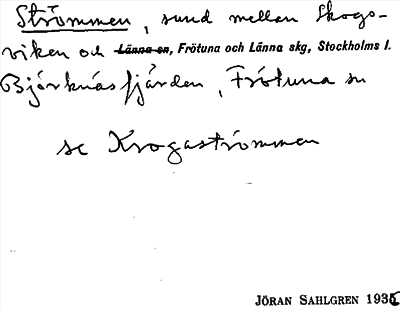 Strömmen, sund mellan Skogs-
viken och Länna sn, Frötuna och Länna skg, Stockholms l.
Björknäsfjärden, Frötuna sn
se Krogaströmmen
JÖRAN SAHLGREN 1935